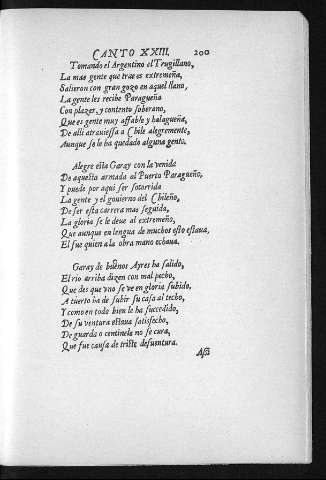 CANTO XXIII. 200
Tomando el Argentino el Trugillano,
La mas gente que trae es extremeña,
Salieron con gran gozo en aquel llano,
La gente les recibe Paragueña
Con plazer, y contento soberano,
Que es gente muy affable y halagueña,
De alli atrauiessa a Chile alegremente,
Aunque se le ha quedado alguna gente.
Alegre esta Garay con la venida
De aquesta armada al Puerto Paragueño,
Y puede por aqui ser socorrida
La gente y el gouierno del Chileño,
De ser esta carrera mas seguida,
La gloria se le deue al extremeño,
Que aunque en lengua de muchos esto estaua,
El fue quien a la obra mano echaua.
Garay de buenos Ayres ha salido,
El rio arriba dizen con mal pecho,
Que des que vno se ve en gloria subido,
A tuerto ha de subir su casa al techo,
Y como en todo bien le ha succedido,
De su ventura estaua satisfecho,
De guarda o centinela no se cura,
Que fue causa de triste desuentura.